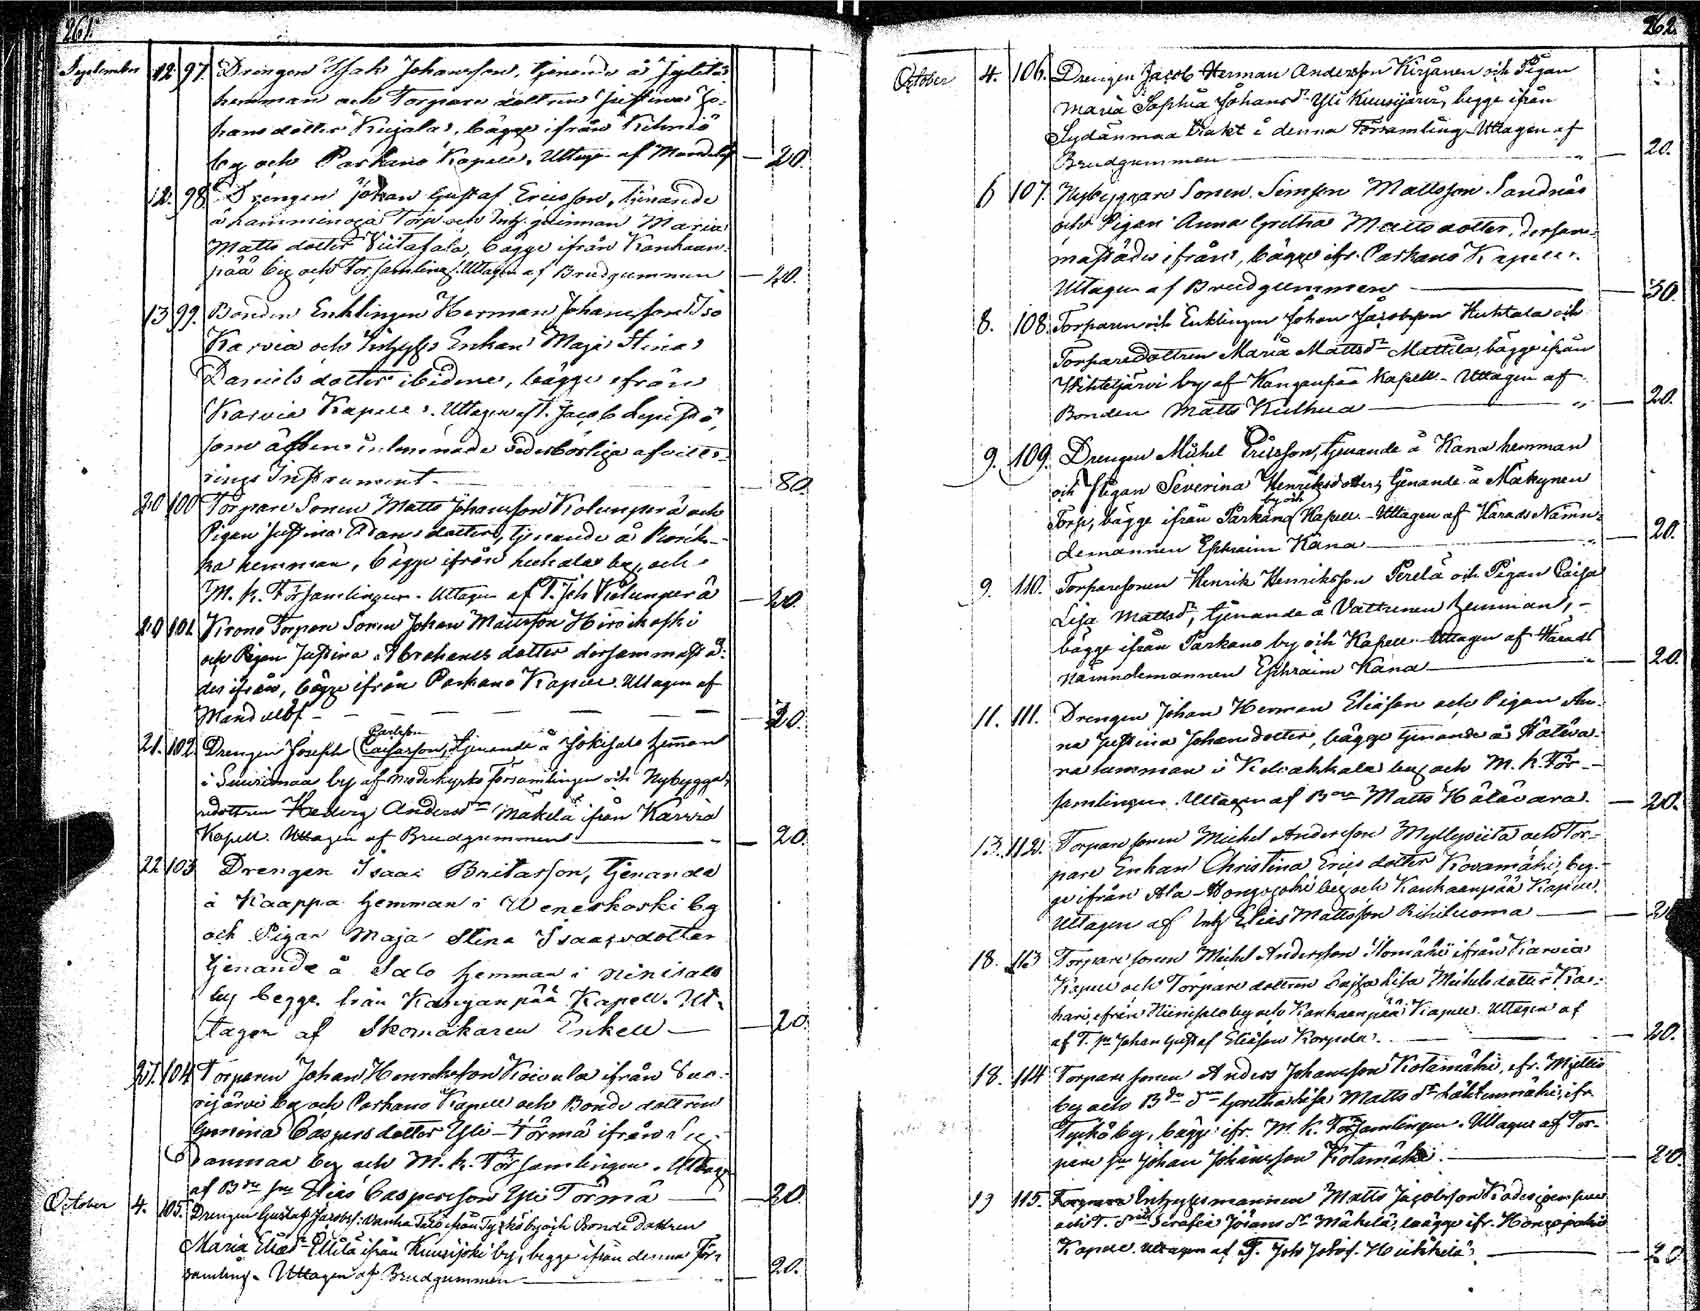 261.
September 12 97. Drängen Isak Johansson, tjenande å
hemman och Torpare dottren Justina Jo-
hans dotter Kujala, bägge ifrån Kihniö
by och Parkano Kapell. Uttagen af Mandelöf — 20.
12. 98. Drengen Johan Gustaf Ericsson, tjenande
å Torp och Inh. qvinnan Maria
Matts dotter Viitasala, bägge ifrån Kankaan-
pää by och Församling. Uttagen af Brudgummen — 20.
13 99. Bonden Enklingen Herman Johansson Iso
Karvia och Inhyses Enkan Maja Stina
Daniels dotter ibidem, bägge ifrån
Karvia Kapell. Uttagen af T. Jacob
som äfven inlemnade vederbörliga afvitt-
rings Instrument — 80.
20 100 Torpare Sonen Matts Johansson Kolunperä och
Pigan Justina Adams dotter, tjenande å
hemman, bägge ifrån by och
M. K. Församlingen. Uttagen af T. Joh Kolunperä — 20.
20 101. Krono Torpare Sonen Johan Mattsson Hirvikoski
och Pigan Justina Abrahams dotter dersammastä-
des ifrån, bägge ifrån Parkano Kapell. Uttagen af
Mandelöf — 20.
Carlsson
21. 102. Drengen Joseph Caisarson, tjenande å Jokisalo heman
i by af moderkyrko församlingen och Nybygga-
redottren Hedvig Andersdr Mäkelä ifrån Karvia
Kapell. Uttagen af Brudgummen — 20.
22 103 Drengen Isaac Britarson, tjenande
å Kaappa hemman i Weneskoski by
och Pigan Maja Stina Isaacsdotter
tjenande å Salo hemman i Niinisalo
by begge från Kanganpää Kapell. Ut-
tagen af Skomakaren Enkell — 20.
27. 104 Torparen Johan Henriksson Koivula ifrån
by och Parkano Kapell och Bonde dottren
Caspers dotter Yli-Törmä ifrån
by och M. K. Församlingen. Uttagen
af Bde sn Elias Caspersson Yli Törmä — 20.
October 4. 105. Drengen Gustaf Jacobss: Vanha Talo ifrån Tyskö by och Bonde Dottren
Maria Eliedr ifrån Kuusijoki by, begge ifrån denna För-
samling. Uttagen af Brudgummen — 20.
262.
October 4. 106. Drengen Jacob Herman Andersson Kirjanen och Pigan
Maria Sophia Johansdr Yli Kuusijärvi, begge ifrån
Sydänmaa trakt i denna Församling. Uttagen af
Brudgummen — 20.
6 107. Nybyggare Sonen Simson Mattsson Sandnäs
och Pigan Anna Gretha Matts dotter, dersam-
mastädes ifrån, bägge ifr. Parkano Kapell.
Uttagen af Brudgummen — 30.
8. 108. Torparen och Enklingen Johan Jacobsson Huhtala och
Torparedottren Maria Mattsdr Mattila, bägge ifrån
Wihteljärvi by af Kanganpää Kapell. Uttagen af
Bonden Matts — 20.
9. 109. Drengen Michel Ericsson, tjenande å Kana hemman
och Pigan Severina Henriksdotter, tjenande å Näkynen
by och
Torp, bägge ifrån Parkano Kapell. Uttagen af Härads Nämn-
demannen Ephraim Kana — 20.
9. 110. Torparesonen Henrik Henriksson Perelä och Pigan Caisa
Lisa Mattsdr, tjenande å Vattunen hemman, -
bägge ifrån Parkano by och Kapell. Uttagen af Härads
nämndemannen Ephraim Kana — 20.
11. 111. Drengen Johan Herman Eliasson och Pigan An-
na Justina Johansdotter, bägge tjenande å Hätäva-
ra hemman i by och M. K. För-
samlingen. Uttagen af Bon Matts Hätävara. — 20.
13. 112. Torpare sonen Michel Andersson Myllyviita och Tor-
pare Enkan Christina Erics dotter Kovamäki, beg-
ge ifrån Ala-Honkajoki by och Kankaanpää Kapell.
Uttagen af Inh Elias Mattsson — 20
18. 113 Torpare sonen Michel Andersson ifrån Karvia
Kapell och Torpare dottren Caisa Lisa Michels dotter
ifrån Niinisalo by och Kankaanpää Kapell. Uttagen af
af T. sn Johan Gustaf Eliasson Korpela. — 20.
18. 114 Torpare sonen Anders Johansson Kotamäki, ifr.
by och Bde dr Gretha Lisa Matts dr ifr.
Tyskö by, bägge ifr. M. K. Församlingen. Uttagen af Tor-
pare sn Johan Johansson Kotamäki. — 20.
19 115. Inhysesmannen Matts Jacobsson
och T. Serafia Johans dr Mäkelä, bägge ifr. Honkajoki
Kapell. Uttagen af T. Joh Heikkilä. — 20